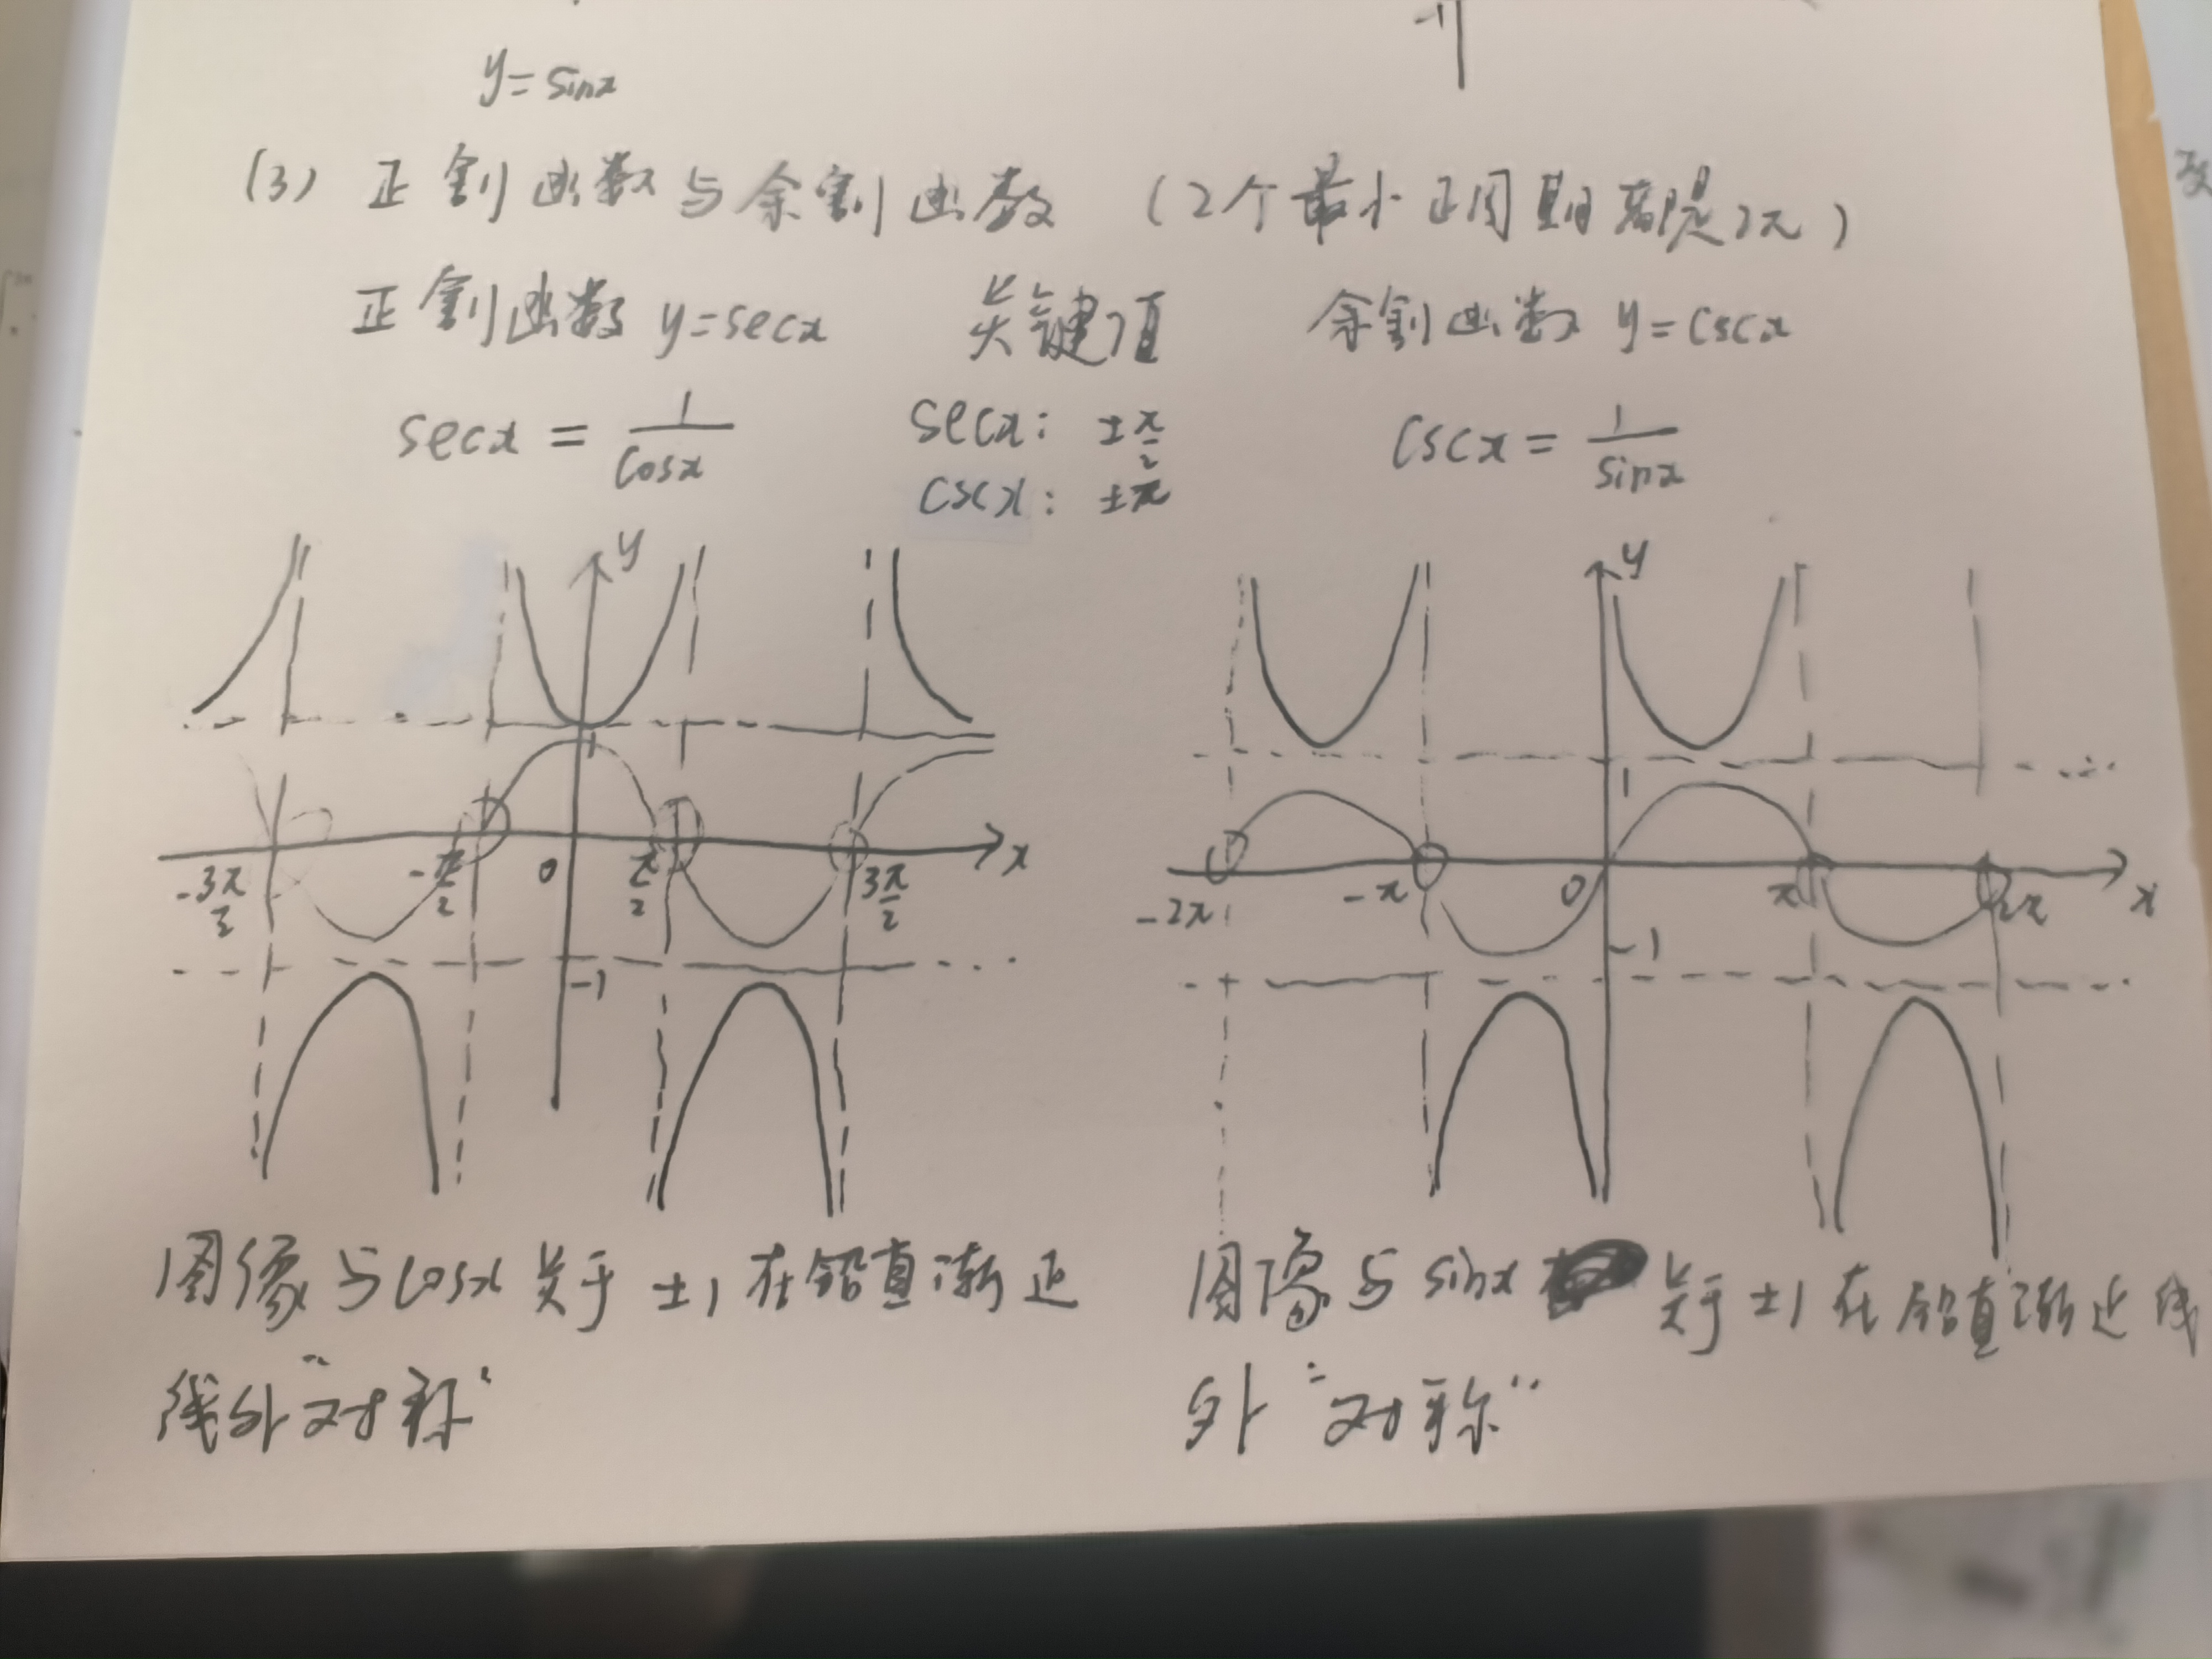 y=sinx
(3) 正割函数与余割函数 (2个最小正周期都是2π)
正割函数 y=secx 关键值 余割函数 y=cscx
secx = 1/cosx secx: ±π/2 cscx = 1/sinx
cscx: ±π
y
1
x
-3π/2 -π/2 0 π/2 3π/2
-1
y
1
x
-2π -π 0 π 2π
-1
图像与cosx关于±1在铅直渐近
线外"对称"
图像与sinx 关于±1在铅直渐近线
外"对称"